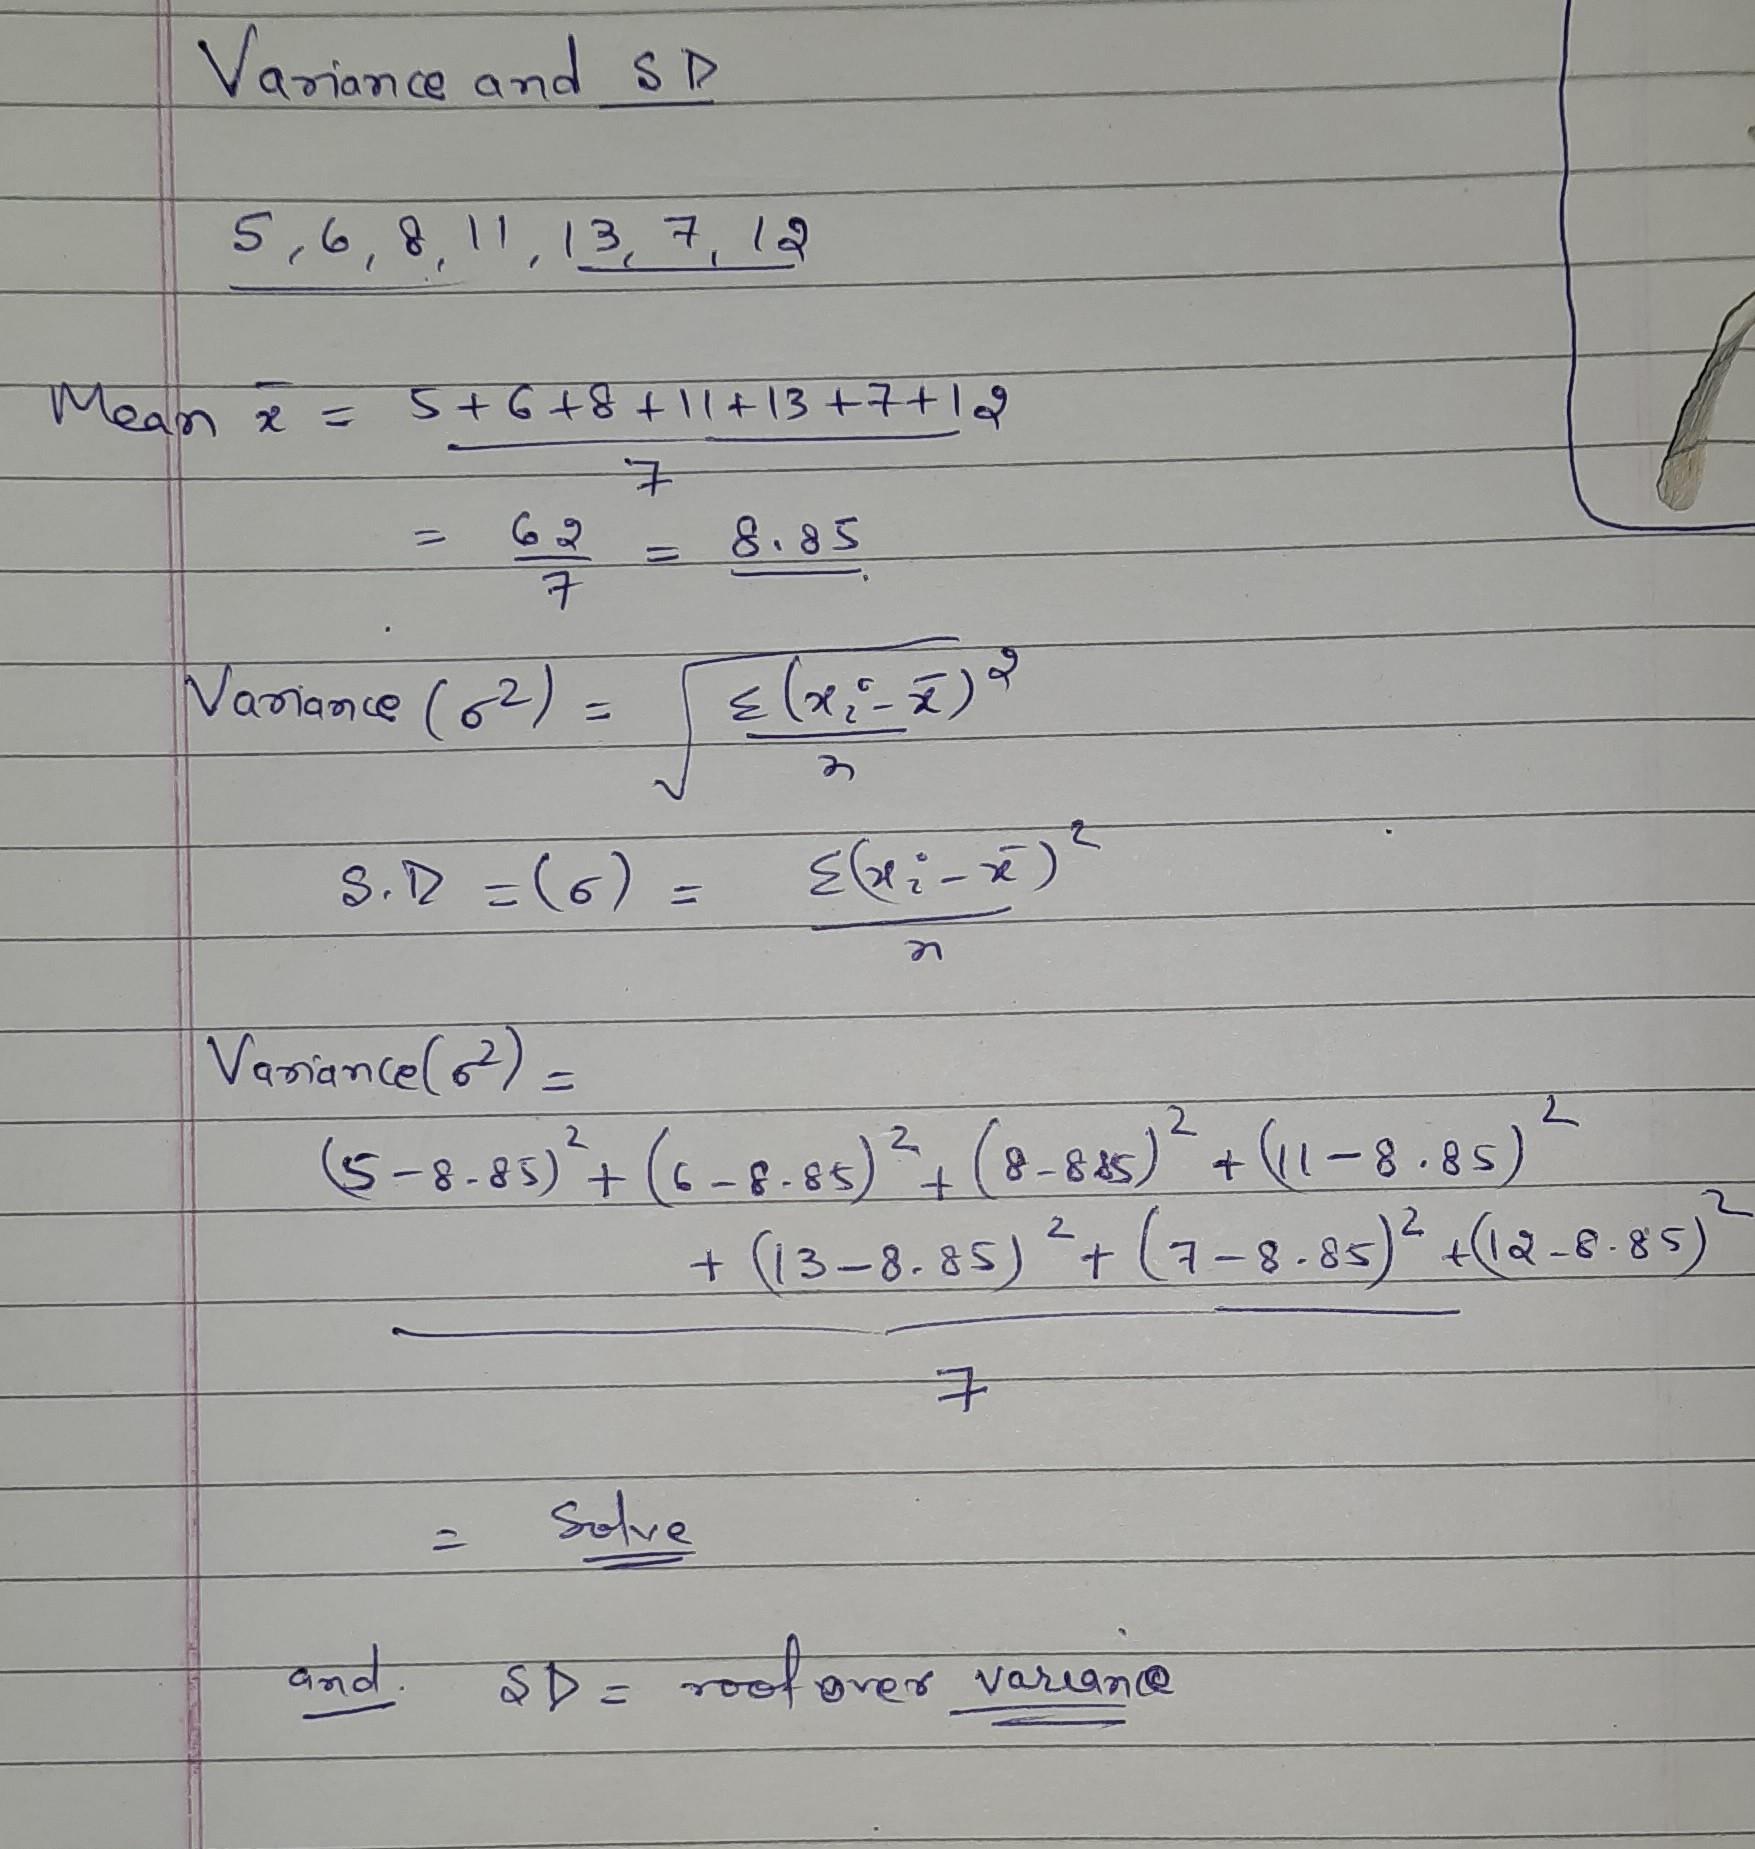 Variance and SD
5, 6, 8, 11, 13, 7, 12
Mean x̄ = 5+6+8+11+13+7+12
7
= 62/7 = 8.85
Variance (σ²) = √(Σ(xᵢ-x̄)²/n)
S.D = (σ) = Σ(xᵢ-x̄)²/n
Variance(σ²) =
(5-8.85)² + (6-8.85)² + (8-8.85)² + (11-8.85)²
+ (13-8.85)² + (7-8.85)² + (12-8.85)²
7
= Solve
and. SD = root over variance